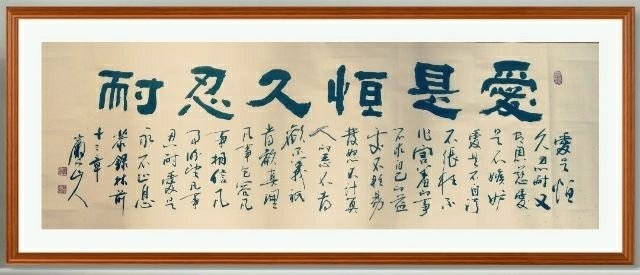 愛是恒久忍耐
愛是恒
久忍耐又
有恩慈愛
是不嫉妒
愛是不自誇
不張狂不
作害羞的事
不求自己的益
處不輕易
發怒不計算
人的惡不喜
歡不義祇
喜歡真理
凡事包容凡
事相信凡
事盼望凡事
忍耐愛是
永不止息
錄林前
十三章
山人